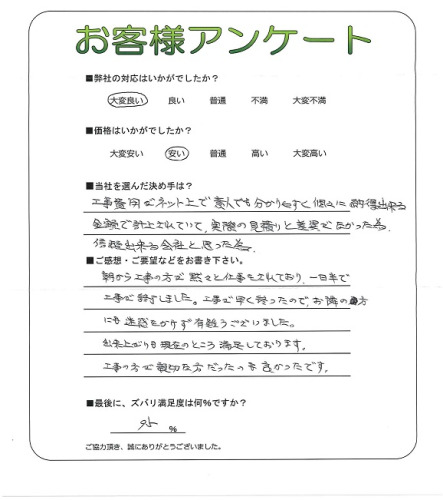 お客様アンケート
■弊社の対応はいかがでしたか？
大変良い 良い 普通 不満 大変不満
■価格はいかがでしたか？
大変安い 安い 普通 高い 大変高い
■当社を選んだ決め手は？
工事費用がネット上で素人でも分かりやすく個人に納得出来る
金額で計上されていて、実際の見積りと差異がなかった為。
信頼出来る会社と思った為。
■ご感想・ご要望などをお書き下さい。
朝から工事の方が黙々と仕事をされており、一日半で
工事が終了しました。工事が早く終ったので、お隣の方
にも迷惑をかけず有難うございました。
仕上がりも現在のところ満足しております。
工事の方が親切な方だったのも良かったです。
■最後に、ズバリ満足度は何%ですか？
95 %
ご協力頂き、誠にありがとうございました。